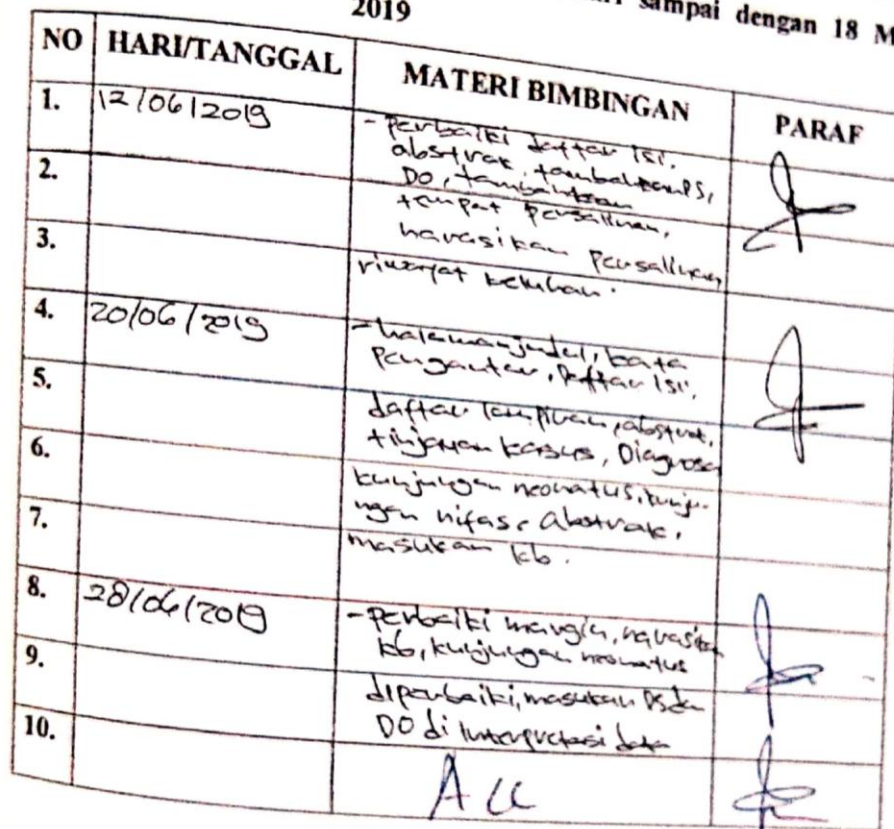 sampai dengan 18 M
2019
NO HARI/TANGGAL MATERI BIMBINGAN PARAF
1. 12/06/2019 - perbaiki daftar isi,
abstrak, tambahkan DS,
2. DO, tambahkan
tempat persalinan,
3. narasikan persalinan,
riwayat keluhan.
4. 20/06/2019 - halaman judul, kata
pengantar, Daftar Isi,
5. daftar lampiran, abstrak,
tinjauan kasus, Diagnosa
6. kunjungan neonatus, kunju-
ngan nifas, Abstrak,
7. masukan kb.
8. 28/06/2019 - perbaiki margin, narasikan
kb, kunjungan neonatus
9. diperbaiki, masukan DS dan
DO di Interpretasi data
10. Acc